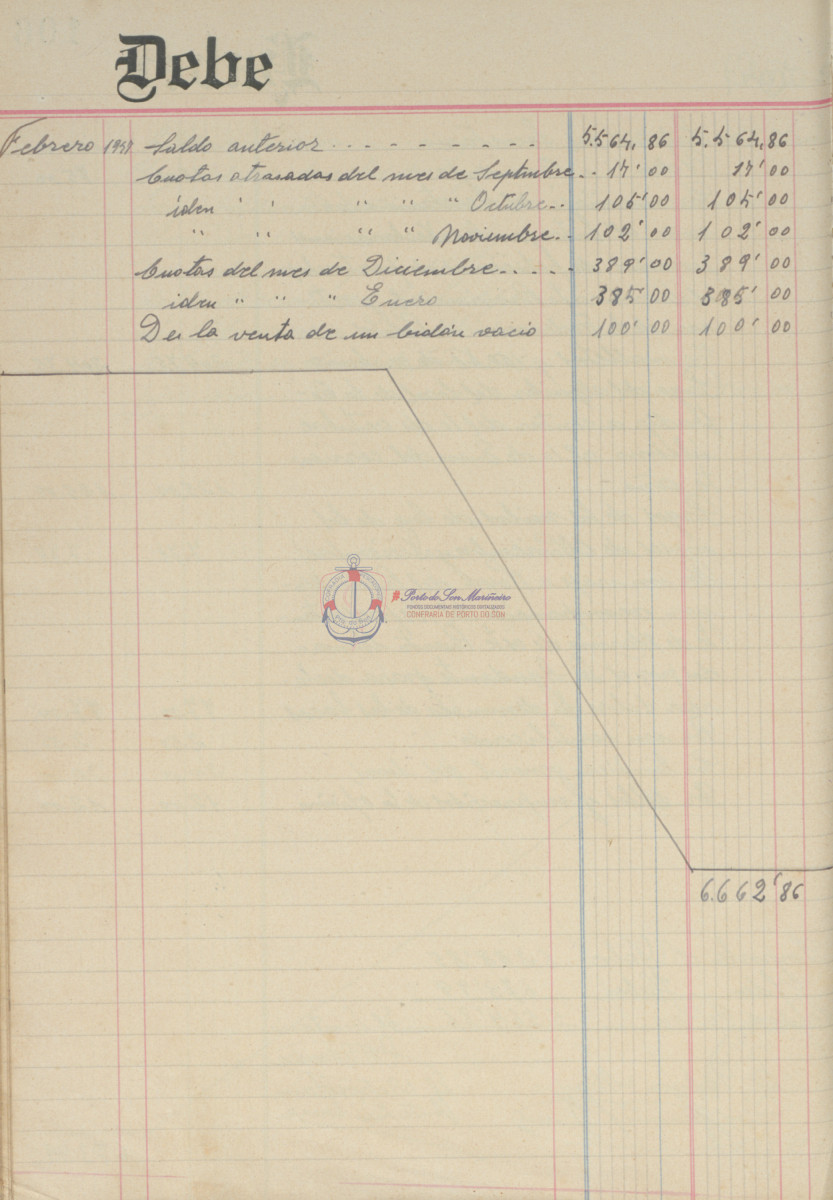 Debe
Febrero 1948 Saldo anterior . . . . . . . . . 5.564,86 5.564,86
Cuotas atrasadas del mes de Septmbre . . 17'00 17'00
iden " " " " " Octubre . . 105'00 105'00
" " " " Noviembre . . 102'00 102'00
Cuotas del mes de Diciembre . . . . . 389'00 389'00
iden " " " Enero 385'00 385'00
De la venta de un bidón vacio 100'00 100'00
#Porto do Son Mariñeiro
FONDOS DOCUMENTAIS HISTÓRICOS DIXITALIZADOS
CONFRARÍA DE PORTO DO SON
6.662'86